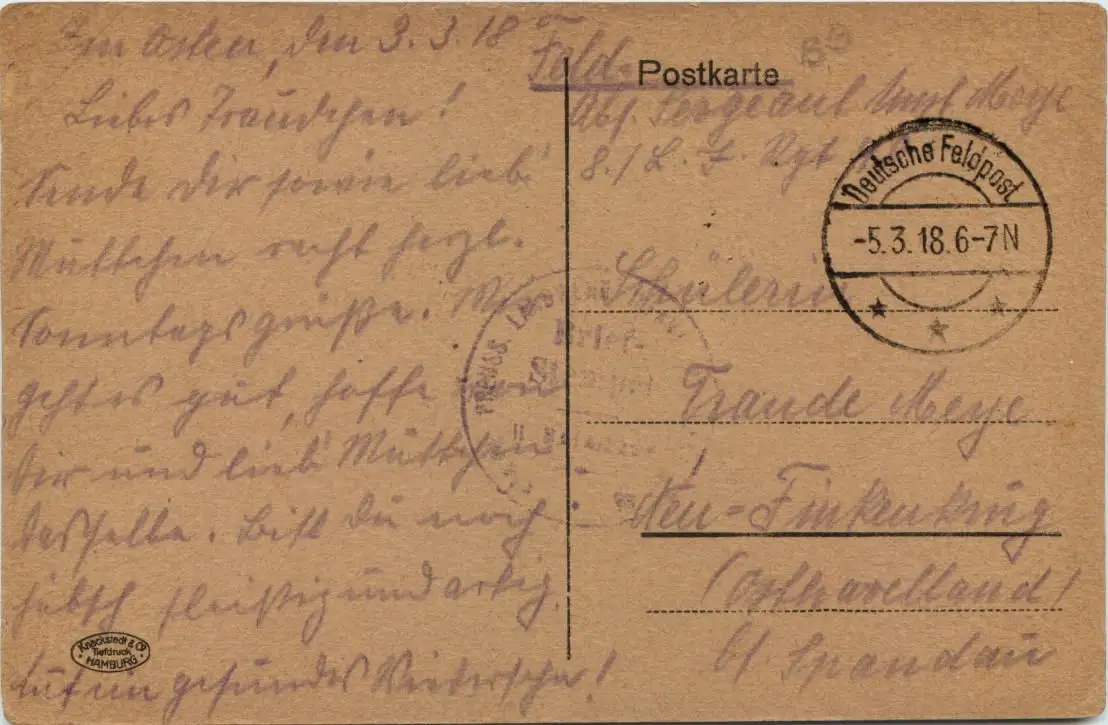 Im Osten, den 3.3.18
Liebes Traudchen!
Sende Dir sowie lieb'
Muttchen recht herzl.
Sonntagsgrüße. Mir
geht es gut, hoffe von
Dir und lieb' Muttchen
dasselbe. Bist Du noch
hübsch fleißig und artig.
Auf ein gesundes Wiedersehn!
Knackstedt & Co
Tiefdruck
HAMBURG
Feld-
Postkarte
Abs. Sergeant Meye
8./L. J. Rgt
Deutsche Feldpost
-5.3.18.6-7N
PREUSS.
Brief-
Schülerin
Traude Meye
Neu-Finkenkrug
(Osthavelland)
b/ Spandau